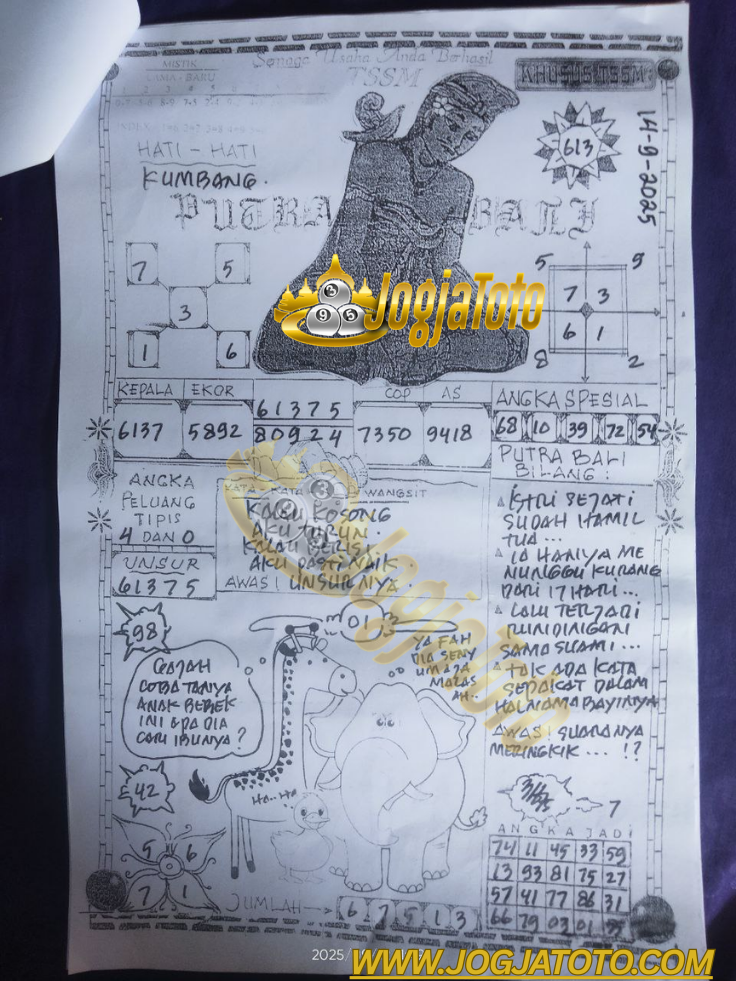 MISTIK
LAMA - BARU
Semoga Usaha Anda Berhasil
TSSM
KHUSUS TSSM
613
14-9-2025
HATI - HATI
KUMBANG.
PUTRA BALI
7 5
3
1 6
5 9
7 3
6 1
8 2
JogjaToto
KEPALA EKOR
6137 5892
61375
80924
COP AS
7350 9418
ANGKA SPESIAL
68 10 39 72 54
ANGKA
PELUANG
TIPIS
4 DAN 0
UNSUR
61375
KATA - KATA WANGSIT
KALAU KOSONG
AKU TURUN.
KALAU BERISI
AKU PASTI NAIK
AWAS! UNSURNYA.
PUTRA BALI
BILANG :
ISTRI SEJATI
SUDAH HAMIL
TUA...
IA HANYA ME
NUNGGU KURANG
DARI 17 HARI...
LALU TERJADI
RUNDINGAN
SAMA SUAMI...
TAK ADA KATA
SEPAKAT DALAM
HAL NAMA BAYINYA
AWAS! SUARANYA
MERINGKIK... !?
98
GAJAH
COBA TANYA
ANAK BEBEK
INI APA DIA
CARI IBUNYA?
42
01
YA FAH
DIA SENY
UM AJA
MALAS
AH..
HA..HA
5 6
7 1
JUMLAH
6 7 5 1 3
7
ANGKA JADI
74 11 45 33 59
13 93 81 75 27
57 41 77 86 31
66 79 03 01
2025/
WWW.JOGJATOTO.COM
JogjaToto